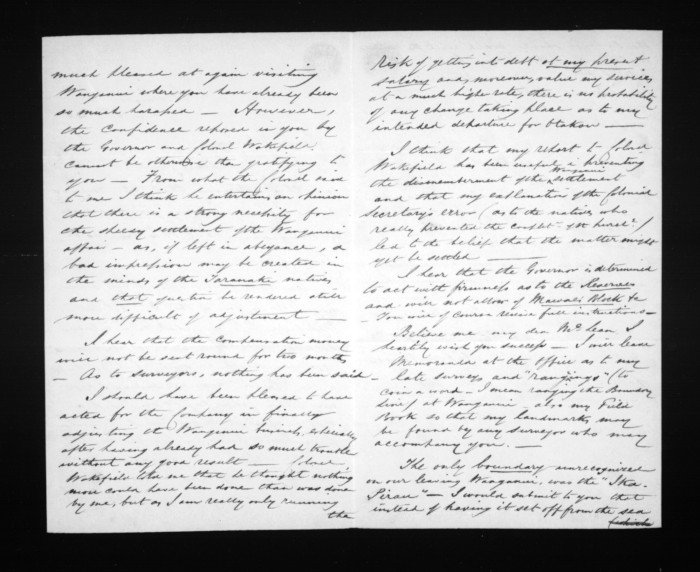 much pleased at again visiting
Wanganui where you have already been
so much harassed — However,
the confidence reposed in you by
the Governor and Colonel Wakefield
cannot be otherwise than gratifying to
you — From what the Colonel said
to me I think he entertains an opinion
that there is a strong necessity for
the speedy settlement of the Wanganui
affair — as, if left in abeyance, a
bad impression may be created in
the minds of the Taranaki natives
and that question be rendered still
more difficult of adjustment —
I hear that the compensation money
will not be sent round for two months
— As to surveyors, nothing has been said —
I should have been pleased to have
acted for the Company in finally
adjusting the Wanganui business, especially
after having already had so much trouble
without any good result — Colonel
Wakefield told me that he thought nothing
more could have been done than was done
by me, but as I am really only running
the
risk of getting into debt at my present
salary and, moreover, value my services
at a much higher rate, there is no probability
of any change taking place as to my
intended departure for Otakou —
I think that my report to Colonel
Wakefield has been useful in preventing
the dismemberment of the Wanganui settlement
and that my explanation of the Colonial
Secretary's error (as to the natives who
really prevented the
led to the belief that the matter might
yet be settled —
I hear that the Governor is determined
to act with firmness as to the Reserves
and will not allow of Mawae's Block &c
— You will of course receive full instructions —
Believe me my dear McLean I
heartily wish you success — I will leave
Memoranda at the office as to my
late surveys and "rangings" (to
coin a word — I mean ranging the Boundary
lines) at Wanganui also my Field
Book so that my landmarks may
be found by any surveyor who may
accompany you. —
The only boundary unrecognized
on our leaving Wanganui, was the "Ika-
Pirau" — I would submit to you that
instead of having it set off from the sea